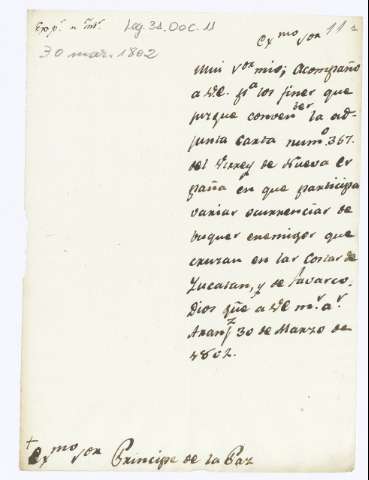 Leg. 31. Doc. 11
30 mar. 1802
Exmo Sor
Mui Sor mio; Acompaño
a V.E. pa los fines que
juzgue convenir la ad-
junta Carta numo 367.
del Virrey de Nueva Es
paña en que participa
varias ocurrencias de
buques enemigos que
cruzan en las Costas de
Yucatan, y de Tavasco.
Dios gũe a V.E. ms as
Aranjz 30 de Marzo de
1802.
+
Exmo Sor Principe de la Paz